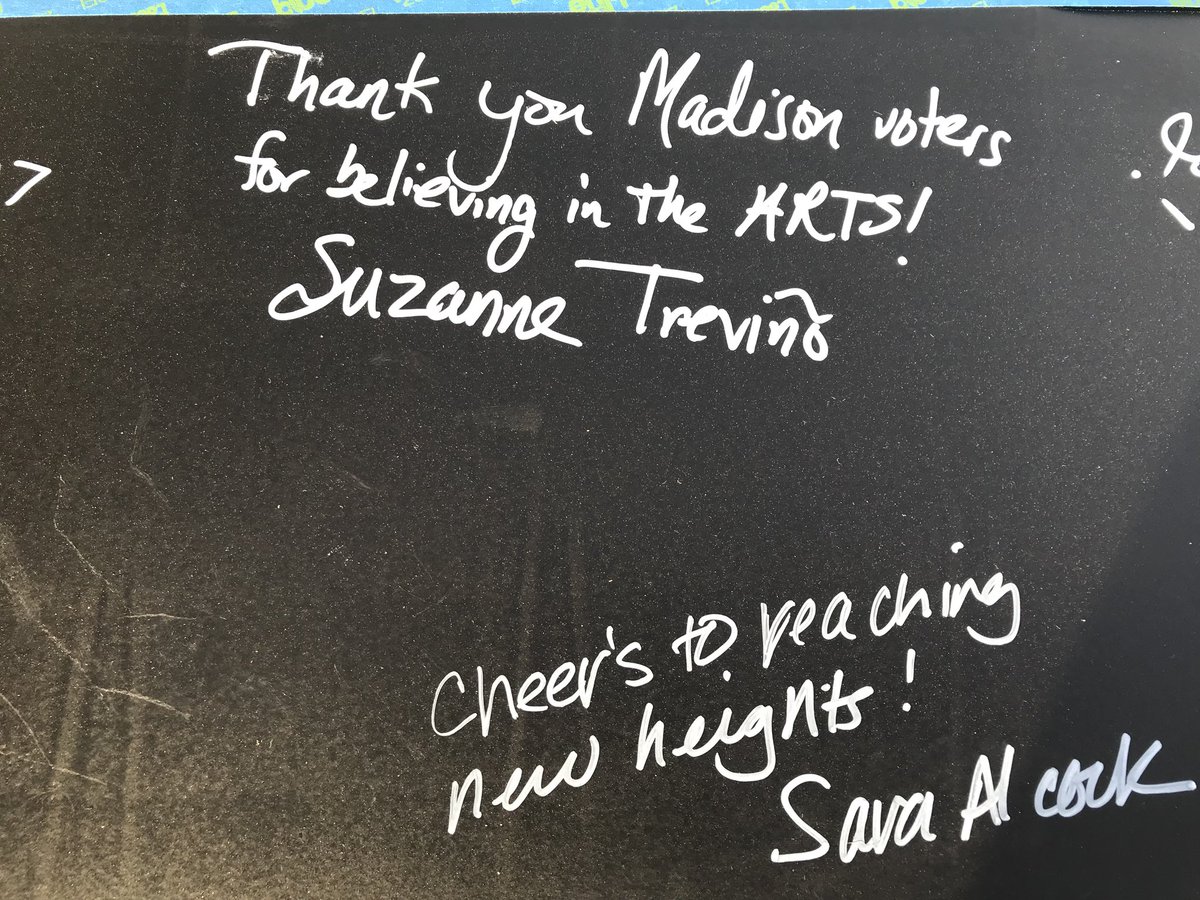 Thank you Madison voters
for believing in the ARTS!
Suzanne Treviño
Cheer's to reaching
new heights!
Sara Alcock